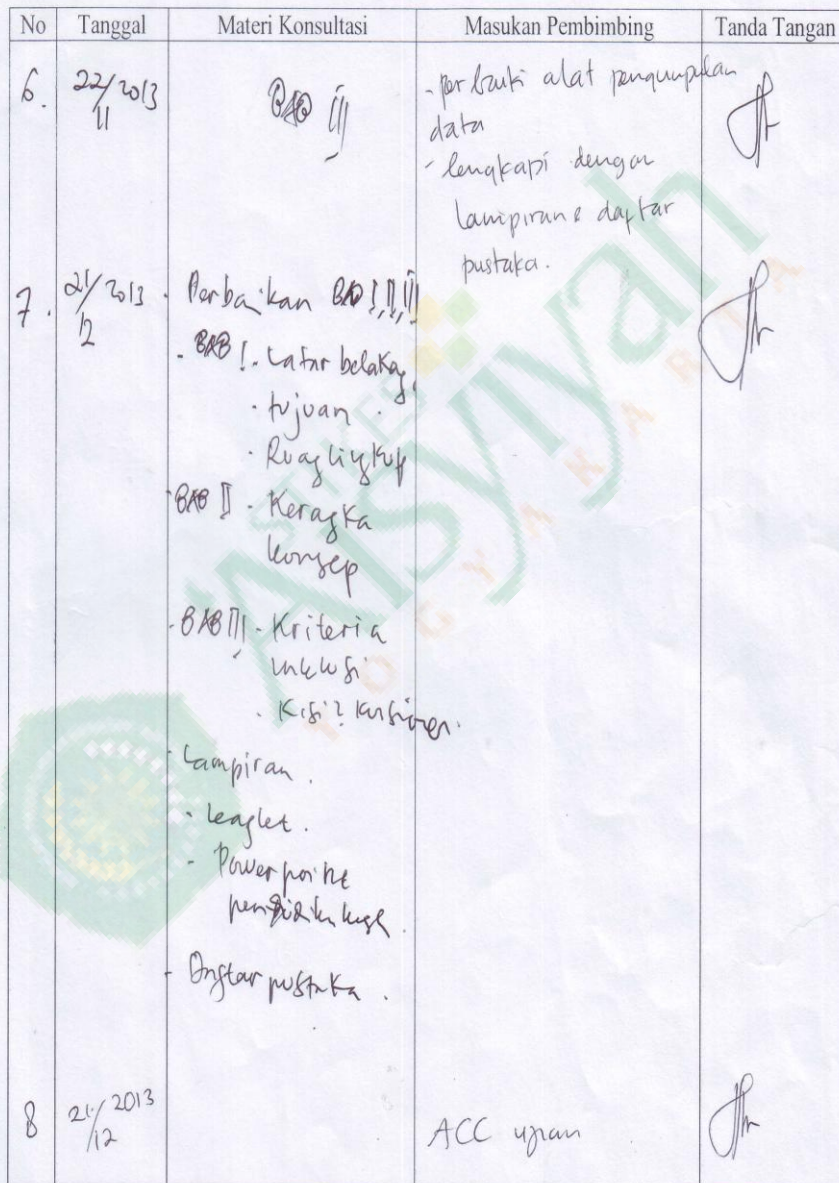 No Tanggal Materi Konsultasi Masukan Pembimbing Tanda Tangan
6. 22/11 2013 BAB III - perbaiki alat pengumpulan
data
- lengkapi dengan
lampiran & daftar
pustaka.
7. 21/12 2013 - Perbaikan BAB I, II, III
- BAB I - Latar belakag
- tujuan
- Ruag ligkup
- BAB II - Keragka
konsep
- BAB III - Kriteria
inklusi
- Kisi2 kusioner.
- Lampiran.
- Leaflet.
- Powerpoint
pendidikan
- Daftar pustaka.
8 21/12 2013 ACC ujian
STIKES
'Aisyiyah
YOGYAKARTA